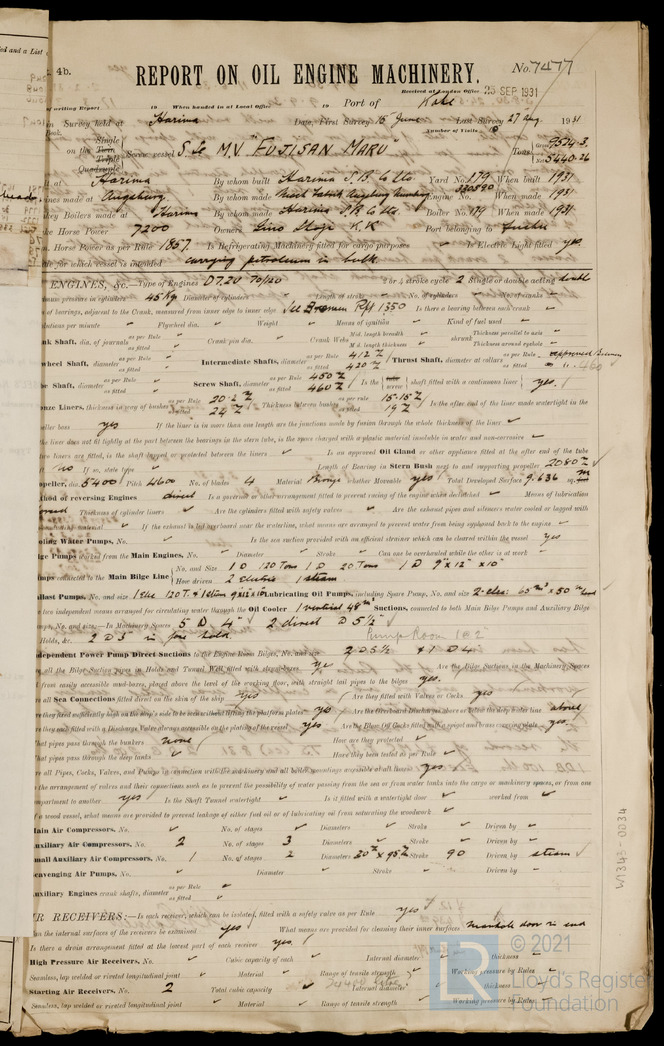 4b.
REPORT ON OIL ENGINE MACHINERY.
No. 7477
Received at London Office 25 SEP 1931
Writing Report 19 When handed in at Local Office 19 Port of Kobe
Survey held at Harima Date, First Survey 16 June Last Survey 27 Aug. 1931
Number of Visits
on the Single Twin Triple Quadruple Screw vessel S. Sc M.V. "FUJISAN MARU" Tons Gross 9524.3 Net 5440.26
at Harima By whom built Harima S.B. Co Ltd. Yard No. 179 When built 1931
Engines made at Augsburg By whom made Engine No. 320590 When made 1931
Boilers made at Harima By whom made Harima S.B. Co Ltd. Boiler No. 179 When made 1931
Horse Power 7200 Owners Iino Shoji K.K. Port belonging to
Horse Power as per Rule 1857 Is Refrigerating Machinery fitted for cargo purposes Is Electric Light fitted yes
for which vessel is intended carrying petroleum in bulk
ENGINES, &c. Type of Engines D7.20 70/120 2 or 4 stroke cycle 2 Single or double acting double
pressure in cylinders 45 Kg Diameter of cylinders Length of stroke No. of cylinders No. of cranks
of bearings, adjacent to the Crank, measured from inner edge to inner edge See Bremen Rpt 1350 Is there a bearing between each crank
Revolutions per minute Flywheel dia. Weight Means of ignition Kind of fuel used
Crank Shaft, dia. of journals as per Rule as fitted Crank pin dia. Crank Webs Mid. length breadth Mid. length thickness shrunk Thickness parallel to axis Thickness around eyehole
wheel Shaft, diameter as per Rule as fitted Intermediate Shafts, diameter as per Rule 412 as fitted 420 Thrust Shaft, diameter at collars as per Rule as fitted
Shaft, diameter as per Rule as fitted Screw Shaft, diameter as per Rule 450 as fitted 460 Is the screw shaft fitted with a continuous liner yes.
Bronze Liners, thickness in way of bushes as per Rule 20.2 as fitted 24 Thickness between bushes as per rule 15.15 as fitted 19 Is the after end of the liner made watertight in the
propeller boss yes If the liner is in more than one length are the junctions made by fusion through the whole thickness of the liner
the liner does not fit tightly at the part between the bearings in the stern tube, is the space charged with a plastic material insoluble in water and non-corrosive
two liners are fitted, is the shaft lapped or protected between the liners Is an approved Oil Gland or other appliance fitted at the after end of the tube
no If so, state type Length of Bearing in Stern Bush next to and supporting propeller 2080
Propeller, dia. 5400 Pitch 4600 No. of blades 4 Material Bronze whether Moveable yes Total Developed Surface 9.636 sq.
Method of reversing Engines direct Is a governor or other arrangement fitted to prevent racing of the engine when declutched Means of lubrication
forced Thickness of cylinder liners Are the cylinders fitted with safety valves Are the exhaust pipes and silencers water cooled or lagged with
non-conducting material If the exhaust is led overboard near the waterline, what means are arranged to prevent water from being syphoned back to the engine
Cooling Water Pumps, No. Is the sea suction provided with an efficient strainer which can be cleared within the vessel yes
Bilge Pumps worked from the Main Engines, No. Diameter Stroke Can one be overhauled while the other is at work
Pumps connected to the Main Bilge Line No. and Size 1 D 120 Tons 1 D 20 Tons 1 D 9" x 12" x 10" How driven 2 electric 1 steam
Ballast Pumps, No. and size Lubricating Oil Pumps, including Spare Pump, No. and size
two independent means arranged for circulating water through the Oil Cooler Suctions, connected to both Main Bilge Pumps and Auxiliary Bilge
Pumps, No. and size:—In Machinery Spaces 5 D 4" 2 direct D 5½"
Holds, &c. 2 D 5 in fore hold. Pump Room 1 @ 2"
Independent Power Pump Direct Suctions to the Engine Room Bilges, No. and size 2 D 5½ & 1 D 4
all the Bilge Suction pipes in Holds and Tunnel Well fitted with strum-boxes yes Are the Bilge Suctions in the Machinery Spaces
from easily accessible mud-boxes, placed above the level of the working floor, with straight tail pipes to the bilges yes.
all Sea Connections fitted direct on the skin of the ship yes Are they fitted with Valves or Cocks yes
they fixed sufficiently high on the ship's side to be seen without lifting the platform plates yes Are the Overboard Discharges above or below the deep water line above
they each fitted with a Discharge Valve always accessible on the plating of the vessel yes Are the Blow Off Cocks fitted with a spigot and brass covering plate yes.
What pipes pass through the bunkers none How are they protected
What pipes pass through the deep tanks Have they been tested as per Rule
Are all Pipes, Cocks, Valves, and Pumps in connection with the machinery and all boiler mountings accessible at all times yes.
the arrangement of valves and their connections such as to prevent the possibility of water passing from the sea or from water tanks into the cargo or machinery spaces, or from one
compartment to another yes Is the Shaft Tunnel watertight Is it fitted with a watertight door worked from
a wood vessel, what means are provided to prevent leakage of either fuel oil or of lubricating oil from saturating the woodwork
Main Air Compressors, No. No. of stages Diameters Stroke Driven by
Auxiliary Air Compressors, No. 2 No. of stages 3 Diameters Stroke Driven by
Small Auxiliary Air Compressors, No. 1 No. of stages 2 Diameters 30 x 95 Stroke 90 Driven by steam
Scavenging Air Pumps, No. Diameter Stroke Driven by
Auxiliary Engines crank shafts, diameter as per Rule as fitted
AIR RECEIVERS:—Is each receiver, which can be isolated, fitted with a safety valve as per Rule yes
Can the internal surfaces of the receivers be examined yes What means are provided for cleaning their inner surfaces manhole door in end
Is there a drain arrangement fitted at the lowest part of each receiver yes.
High Pressure Air Receivers, No. Cubic capacity of each Internal diameter thickness
Seamless, lap welded or riveted longitudinal joint Material Range of tensile strength Working pressure by Rules
Starting Air Receivers, No. 2 Total cubic capacity Internal diameter thickness
Seamless, lap welded or riveted longitudinal joint Material Range of tensile strength Working pressure by Rules
W1343-0034
LR
© 2021
Lloyd's Register
Foundation